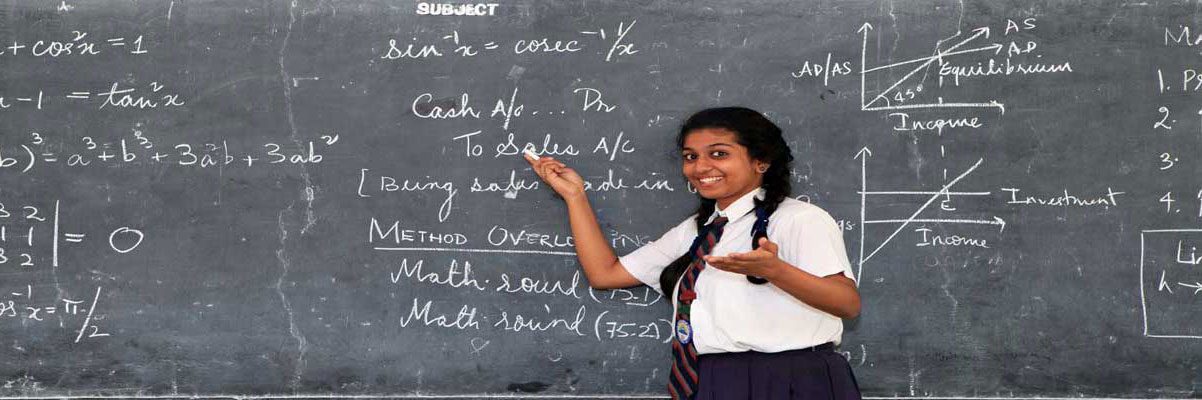 SUBJECT
+ cos²x = 1
- 1 = tan²x
)³ = a³ + b³ + 3a²b + 3ab²
3 2
1 1 = 0
3 2
os⁻¹x = π/2
sin⁻¹x = cosec⁻¹ 1/x
Cash A/c ... Dr
To Sales A/c
[Being sales made in
METHOD OVERLOADING
Math.round (
Math.round (75.2
AD/AS
AS
AD
Equilibrium
45°
Income
Investment
E
Income
MA
1. Pr
2.
3.
4.
Lin
h →